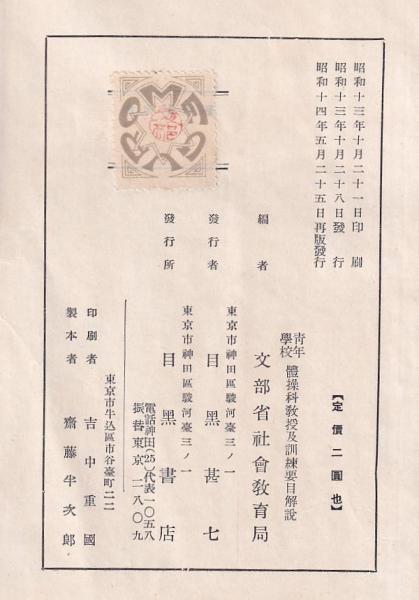 昭和十三年十月二十一日印刷
昭和十三年十月二十八日發行
昭和十四年五月二十五日再版發行
【定價二圓也】
青年學校 體操科教授及訓練要目解說
編者 文部省社會教育局
東京市神田區駿河臺三ノ一
發行者 目黑甚七
東京市神田區駿河臺三ノ一
發行所 目黑書店
電話神田(25)代表一〇五八
振替東京二八〇九
東京市牛込區市谷臺町二二
印刷者 吉中重國
製本者 齋藤半次郎